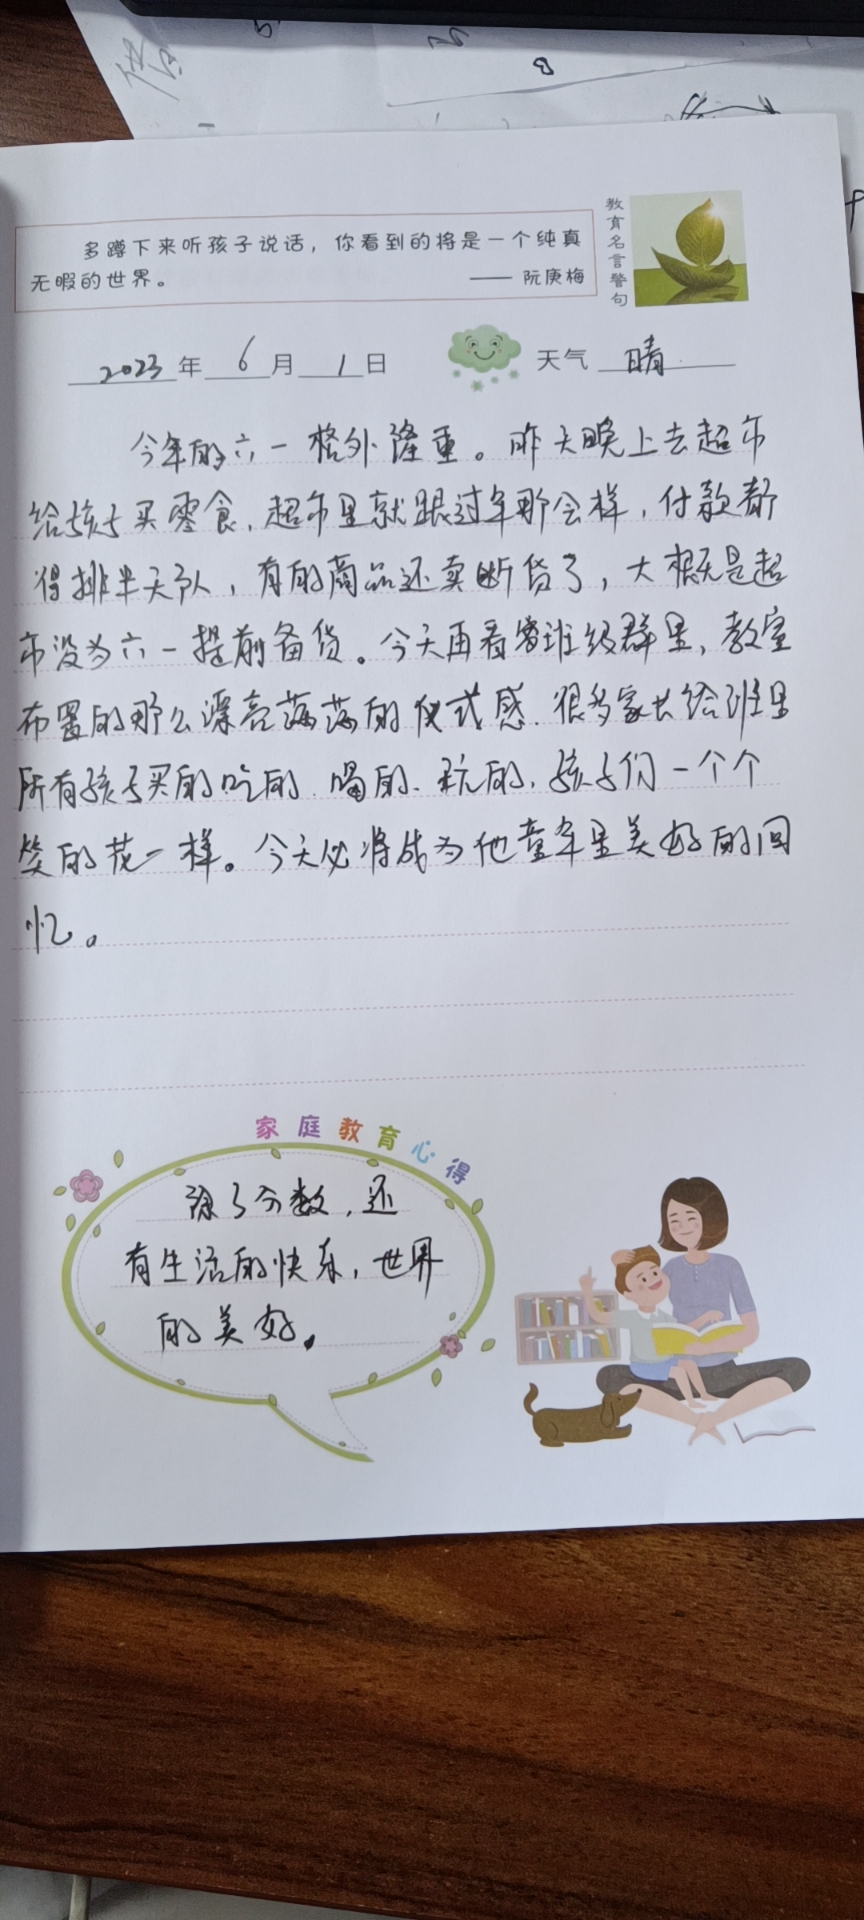 多蹲下来听孩子说话，你看到的将是一个纯真
无暇的世界。 —— 阮庚梅
教育名言警句
2023年6月1日 天气 晴
今年的六一格外隆重。昨天晚上去超市
给孩子买零食，超市里就跟过年那会样，付款都
得排半天队，有的商品还卖断货了，大概是超
市没为六一提前备货。今天再看班级群里，教室
布置的那么漂亮满满的仪式感，很多家长给班里
所有孩子买的吃的、喝的、玩的，孩子们一个个
笑的花一样。今天必将成为他童年里美好的回
忆。
家庭教育心得
除了分数，还
有生活的快乐，世界
的美好。